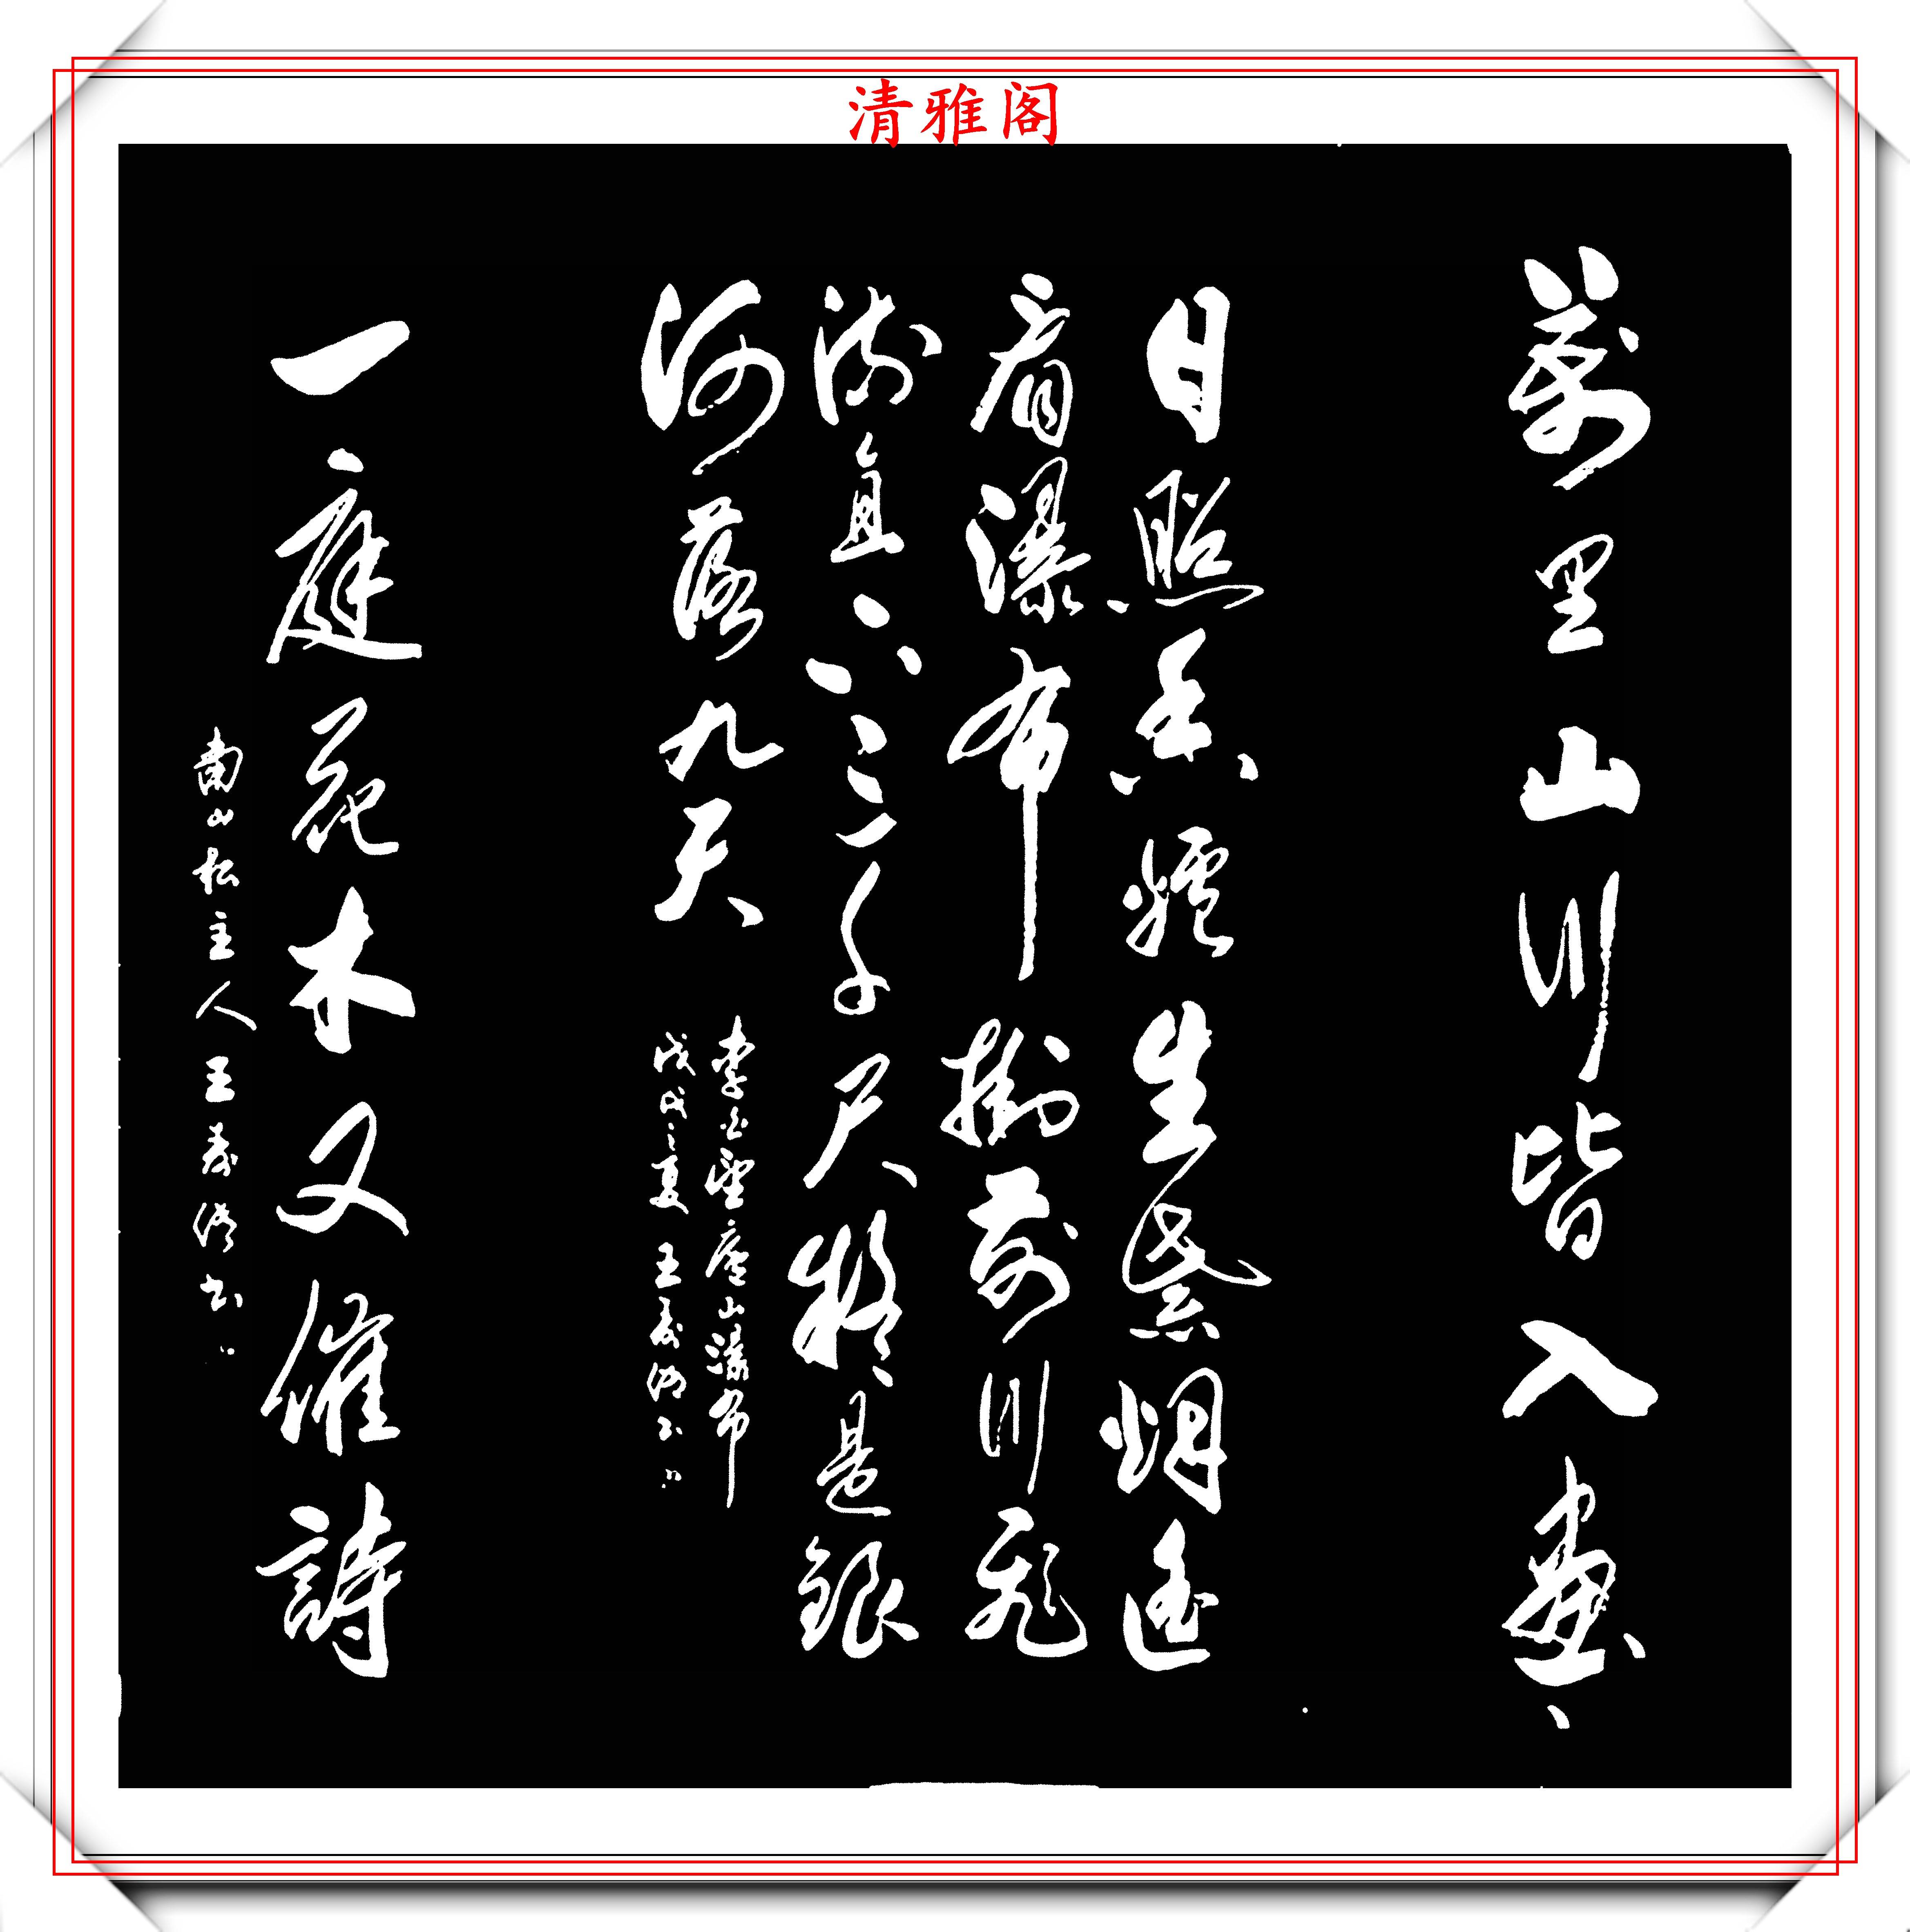 清雅阁
萬里山川皆入畫
日照香爐生紫烟遥
看瀑布掛前川飛
流直下三千尺疑是銀
河落九天
李白望廬山瀑布
戊戌之夏王
一庭花木又催詩
南山松主人王